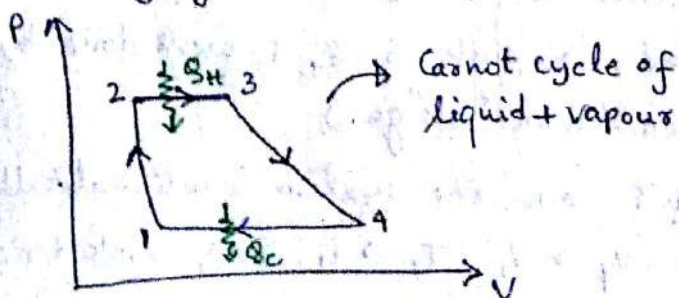 P
2
Q_H
3
Carnot cycle of
liquid + vapour
1
Q_C
4
V